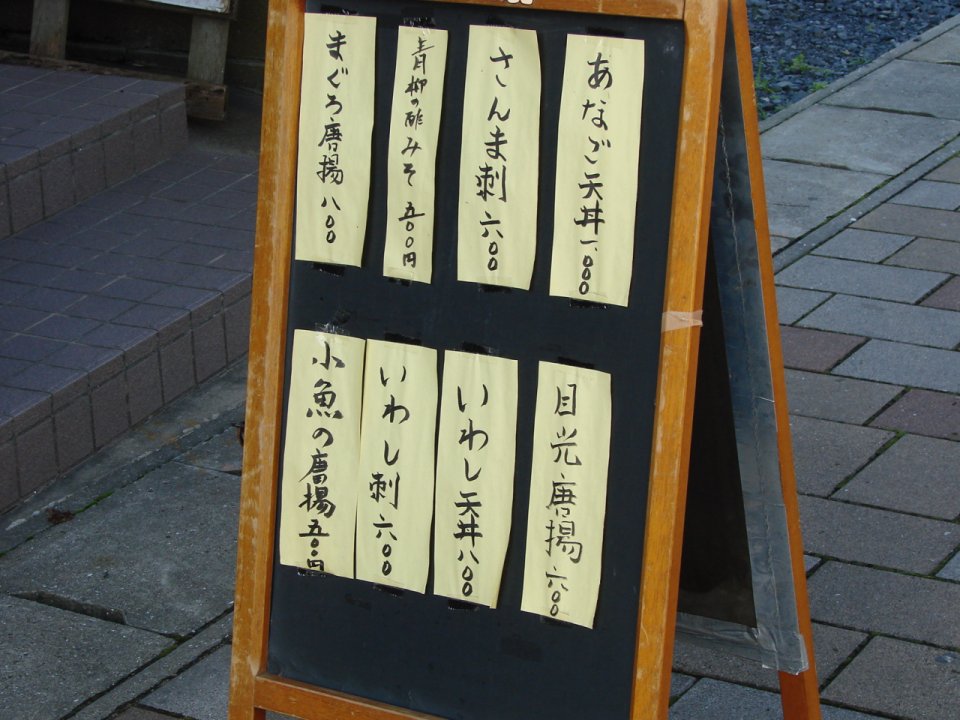 あなご天丼 一、〇〇〇
さんま刺 六〇〇
青柳の酢みそ 五〇〇円
まぐろ唐揚 八〇〇
目光唐揚 六〇〇
いわし天丼 八〇〇
いわし刺 六〇〇
小魚の唐揚 五〇〇円